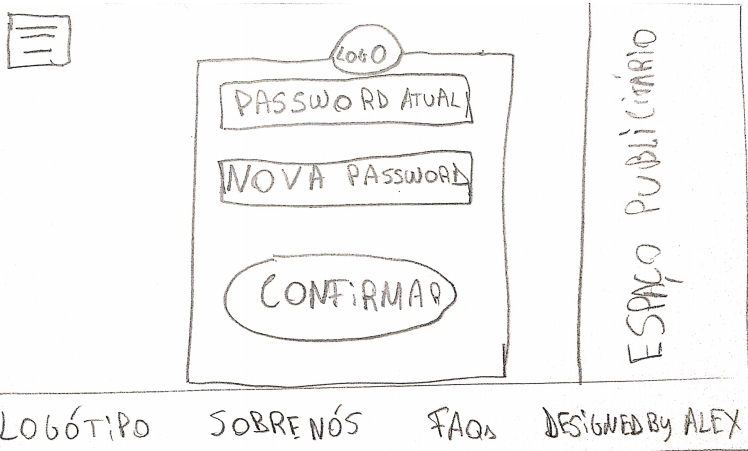 LOGO
PASSWORD ATUAL
NOVA PASSWORD
CONFIRMAR
ESPAÇO PUBLICITÁRIO
LOGÓTIPO SOBRE NÓS FAQs DESIGNED By ALEX